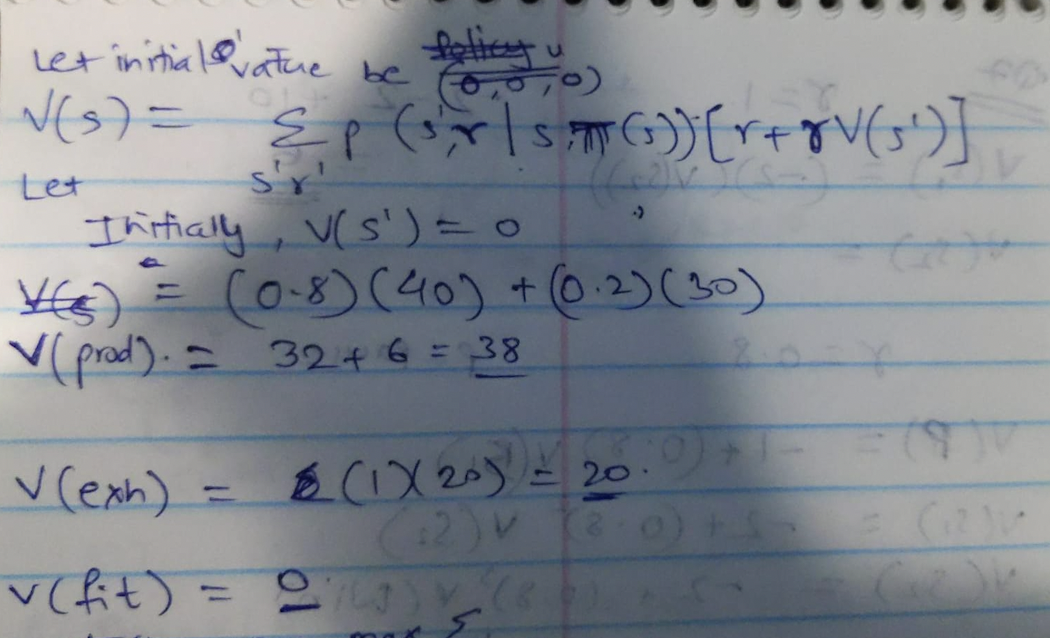 Let initial value be (0,0,0)
V(s) = Σ p (s',r | s,π(s)) [r+γV(s')]
s'r'
Let
Initially, V(s') = 0
= (0.8)(40) + (0.2)(30)
V(prod). = 32 + 6 = 38
V(exh) = (1)(20) = 20.
V(fit) = 0
max